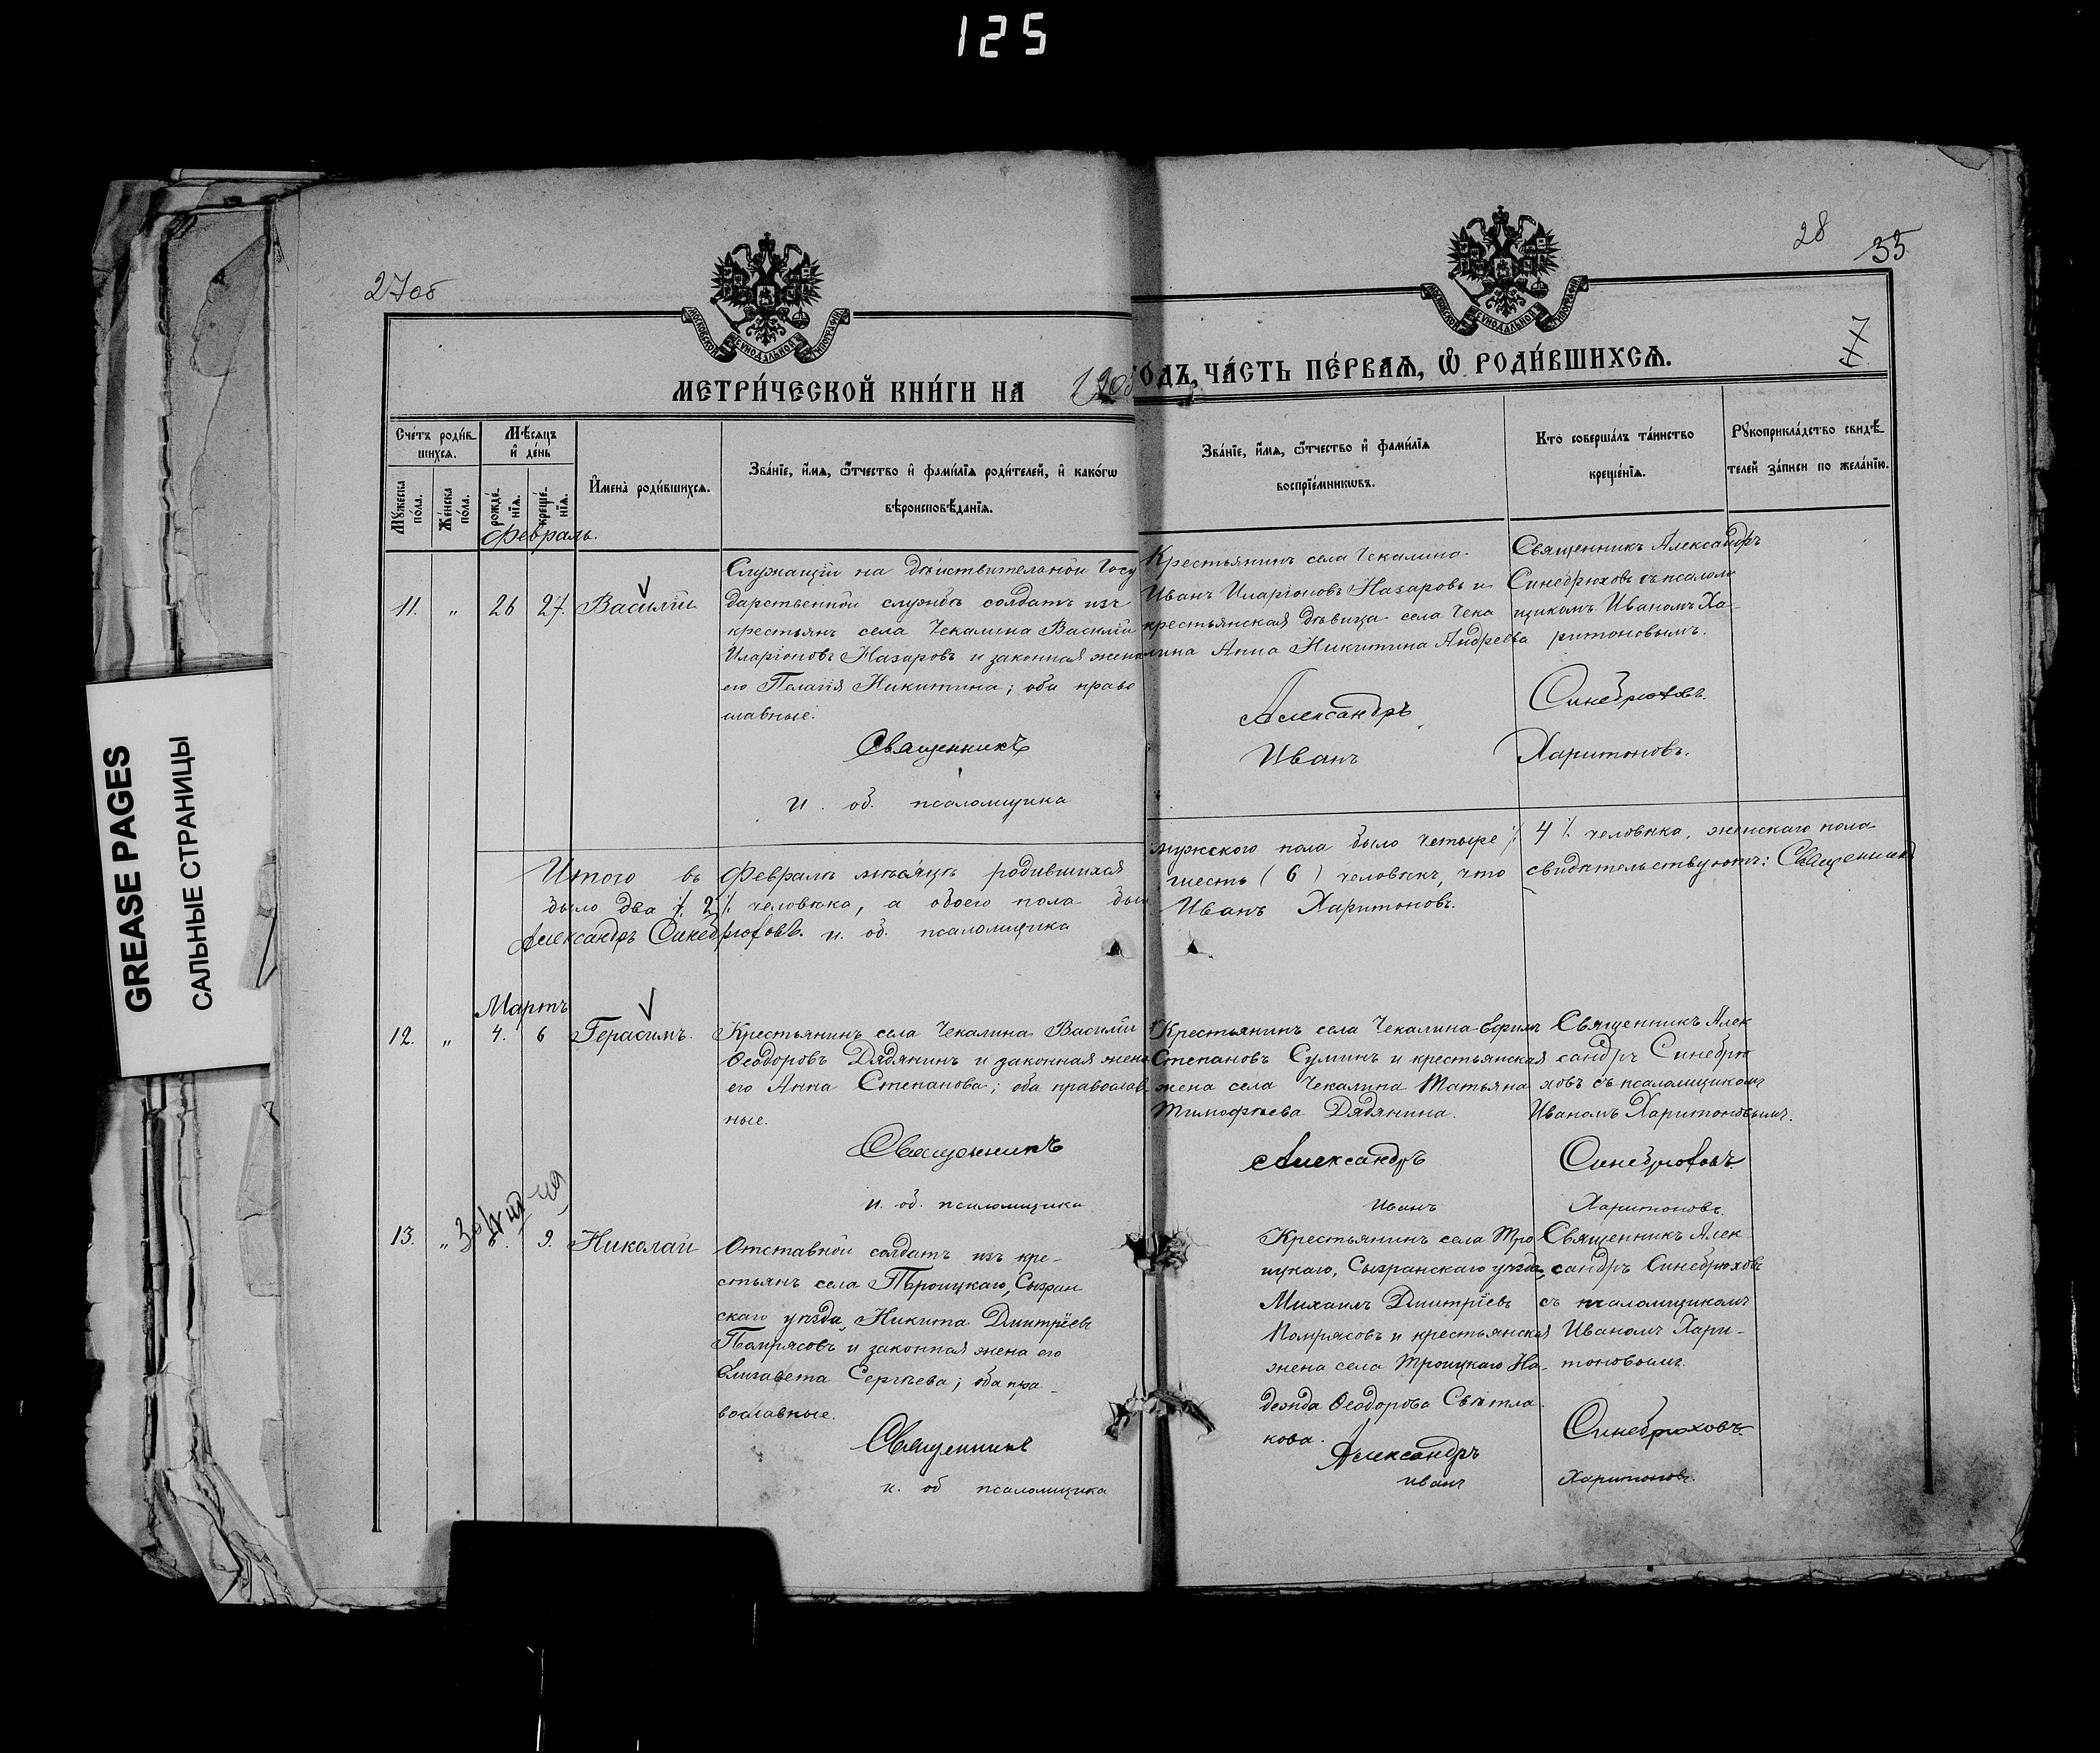 125
27об
28
35
МОСКОВСКОЙ СѴНОДАЛЬНОЙ ТИПОГРАФІИ
МОСКОВСКОЙ СѴНОДАЛЬНОЙ ТИПОГРАФІИ
МЕТРИ́ЧЕСКОЙ КНИ́ГИ НА
ГО́ДЪ, ЧА́СТЬ ПЕ́РВАѦ, Ѽ РОДИ́ВШИХСѦ.
Сче́тъ роди́в-
шихсѧ.
Мꙋ́жеска по́ла.
Же́нска по́ла.
Мѣ́сѧцъ и҆ де́нь
рожде́-нїѧ.
креще́-нїѧ.
И҆мена̀ роди́вшихсѧ.
Зва́нїе, и҆́мѧ, ѻ҆́тчество и҆ фами́лїѧ роди́телей, и҆ како́гѡ
вѣроисповѣ́данїѧ.
Зва́нїе, и҆́мѧ, ѻ҆́тчество и҆ фами́лїѧ
воспрїе́мникѡвъ.
Кто̀ соверша́лъ та́инство
креще́нїѧ.
Рꙋкоприкла́дство свидѣ́-
телей за́писи по жела́нїю.
Февраль.
11. " 26 27. Василій
Служащій на дѣйствительной Госу
дарственной службѣ солдатъ изъ
крестьянъ села Чекалина Василій
Иларіоновъ Назаровъ и законная жена
его Пелагія Никитина; оба право
славные.
Священникъ
и. об. псаломщика
Крестьянинъ села Чекалина
Иванъ Иларіоновъ Назаровъ и
крестьянская дѣвица села Чека
лина Анна Никитина Андреева
Александръ
Иванъ
Священникъ Александръ
Синебрюховъ съ псалом
щикомъ Иваномъ Ха-
ритоновымъ.
Синебрюховъ.
Харитоновъ.
Итого въ Февралѣ мѣсяцѣ родившихся мужского пола было четыре /. 4 /. человѣка, женскаго пола
было два /. 2 /. человѣка, а обоего пола было шесть (6) человѣкъ, что свидѣтельствуютъ: Священникъ
Александръ Синебрюховъ. и. об. псаломщика Иванъ Харитоновъ.
Мартъ
12. " 4. 6 Герасимъ.
Крестьянинъ села Чекалина Василій
Ѳеодоровъ Дядянинъ и законная жена
его Анна Степанова; оба православ
ные.
Священникъ
и. об. псаломщика
Крестьянинъ села Чекалина Ефимъ
Степановъ Суминъ и крестьянская
жена села Чекалина Татьяна
Тимофѣева Дядянина.
Александръ
Иванъ
Священникъ Алек
сандръ Синебрю
ховъ съ псаломщикомъ
Иваномъ Харитоновымъ.
Синебрюховъ.
Харитоновъ.
13. " 6. 9. Николай
Отставной солдатъ изъ кре-
стьянъ села Троицкаго, Сызран
скаго уѣзда, Никита Дмитріевъ
Помрясовъ и законная жена его
Елизавета Сергѣева; оба пра-
вославные.
Священникъ
и. об псаломщика
Крестьянинъ села Тро
ицкаго, Сызранскаго уѣзда,
Михаилъ Дмитріевъ
Помрясовъ и крестьянская
жена села Троицкаго На-
дежда Ѳеодорова Свѣтла
кова.
Александръ
Иванъ
Священникъ Алек
сандръ Синебрюховъ
съ псаломщикомъ
Иваномъ Хари-
тоновымъ.
Синебрюховъ.
Харитоновъ.
GREASE PAGES
САЛЬНЫЕ СТРАНИЦЫ